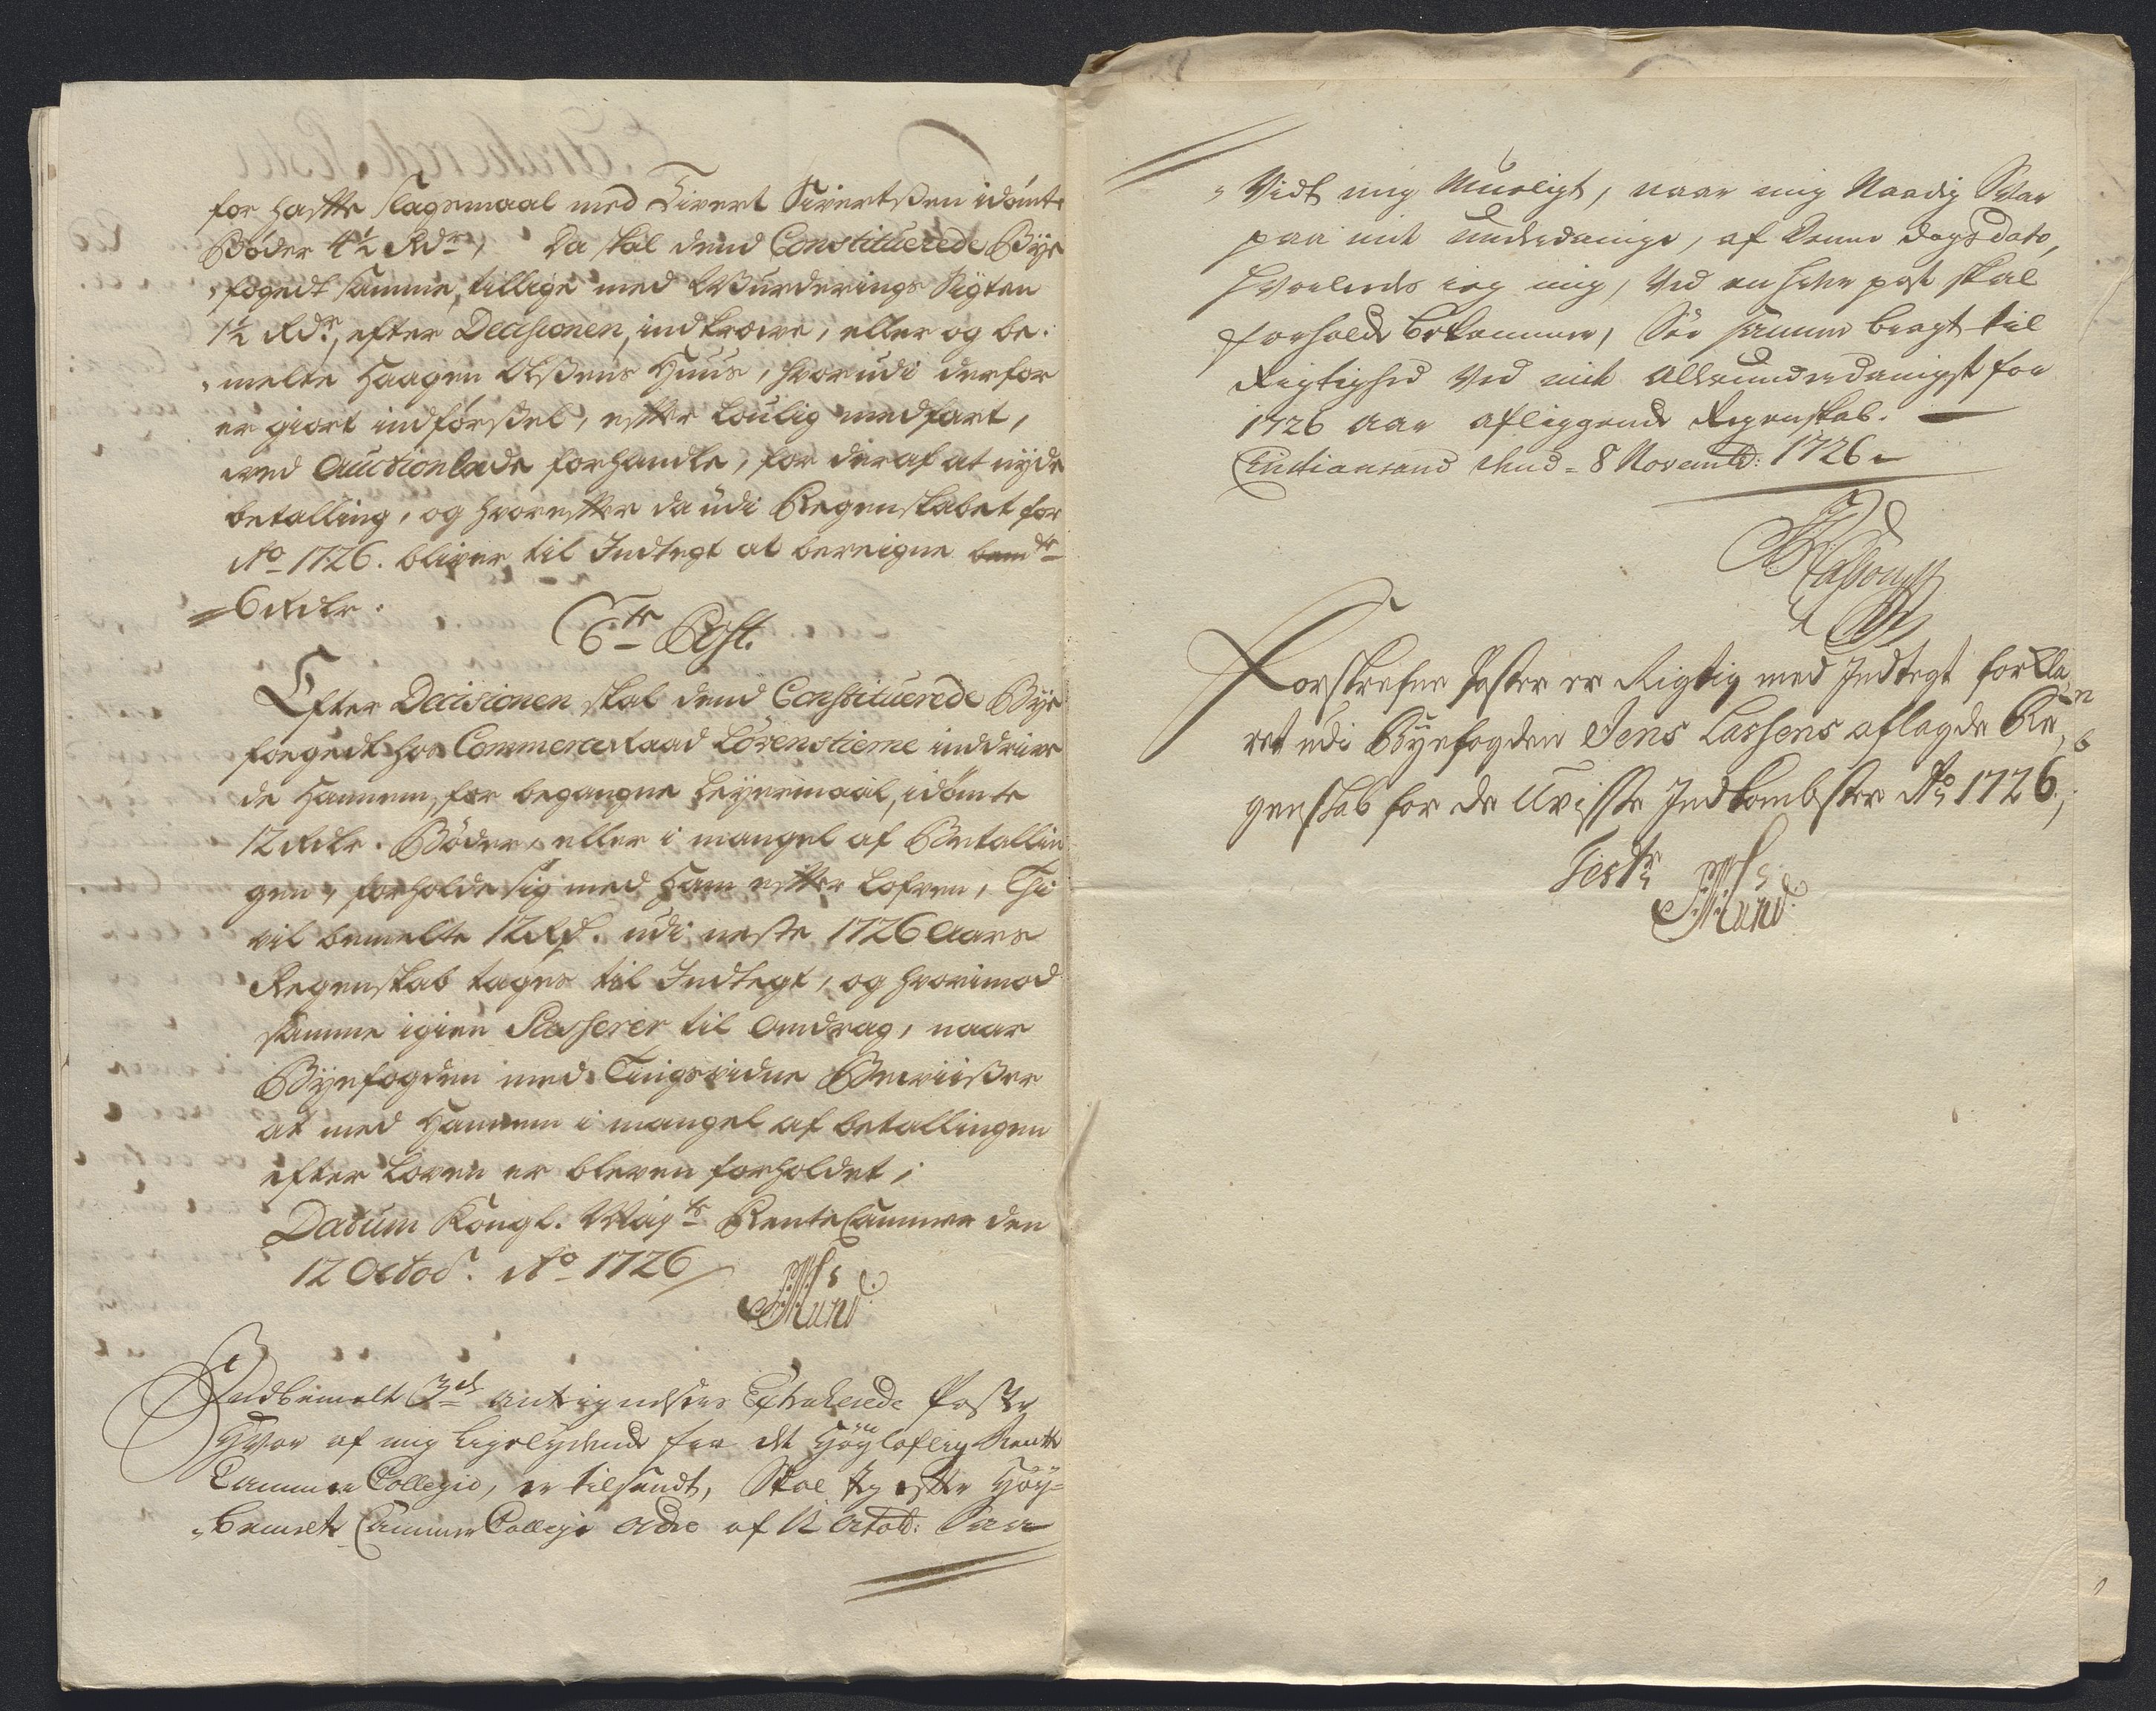 for hafte Slagsmaal med Sivert Sivertsen idömte
Böder 4½ Rdr, Da skal dend Constituerede Bÿe
fogedt samme, tillige med Wurderings Sigten
1½ Rdr, efter Decisionen, indkræve, eller og be-
melte Haagen Olsens Huus, hvorudi derfor
er giort indförsel, efter loulig medfart,
ved Auction lade forhandle, for deraf at nyde
betalling, og hvorefter da udi Regenskabet for
Ao 1726. bliver til Indtegt at bereigne bemte
6 Rdlr.
6te Post.
Efter Decisionen skal dend Constituerede Bÿe
foegedt hos Commerceraad Lövenstierne inddrive
de Hannem, for begangne Leÿermaal, idömte
12 Rdlr. Böder, eller i mangel af Betallin
gen, forholde sig med Ham efter Lofven, Thi
vil bemelte 12 Rdr. udi neste 1726 Aars
Regenskab tages til Indtegt, og hvorimod
samme igien Passerer til Omdrag, naar
Bÿefogden med Tingsvidne Beviiser
at med Hannem i mangel af betallingen
efter Loven er bleven forholdet;
Datum Kongl. Mayts RenteCammer den
12 Octob. Ao 1726
Lund
Indbemelte 3de antegnelsers Extraherede Poster
Hvor af mig ligelydende fra det Höÿloflig Rente
Cammer Collegio, er tilsendt, Skal Jeg efter Höÿ-
bemelte Cammer Collegi Ordre af 12 Octob: Saa
Vidt mig Mueligt, naar mig Naadig Svar
paa mit underdanige, af Denne dags dato,
Hvorledes ieg mig, Ved en hehr post skal
forholde bekommer, See samme bragt til
Rigtighed Ved mit Allerunderdanigst for
1726 Aar afleggende Regenskab.
Christiansand Slud= 8 Novembr: 1726
Forskrefne Poster er Rigtig med Indtegt forkla
ret udi Bÿefogden Jens Lassens aflagde Re
genskab for de Uvisse Indkombster Ao 1726,
Test
Lund